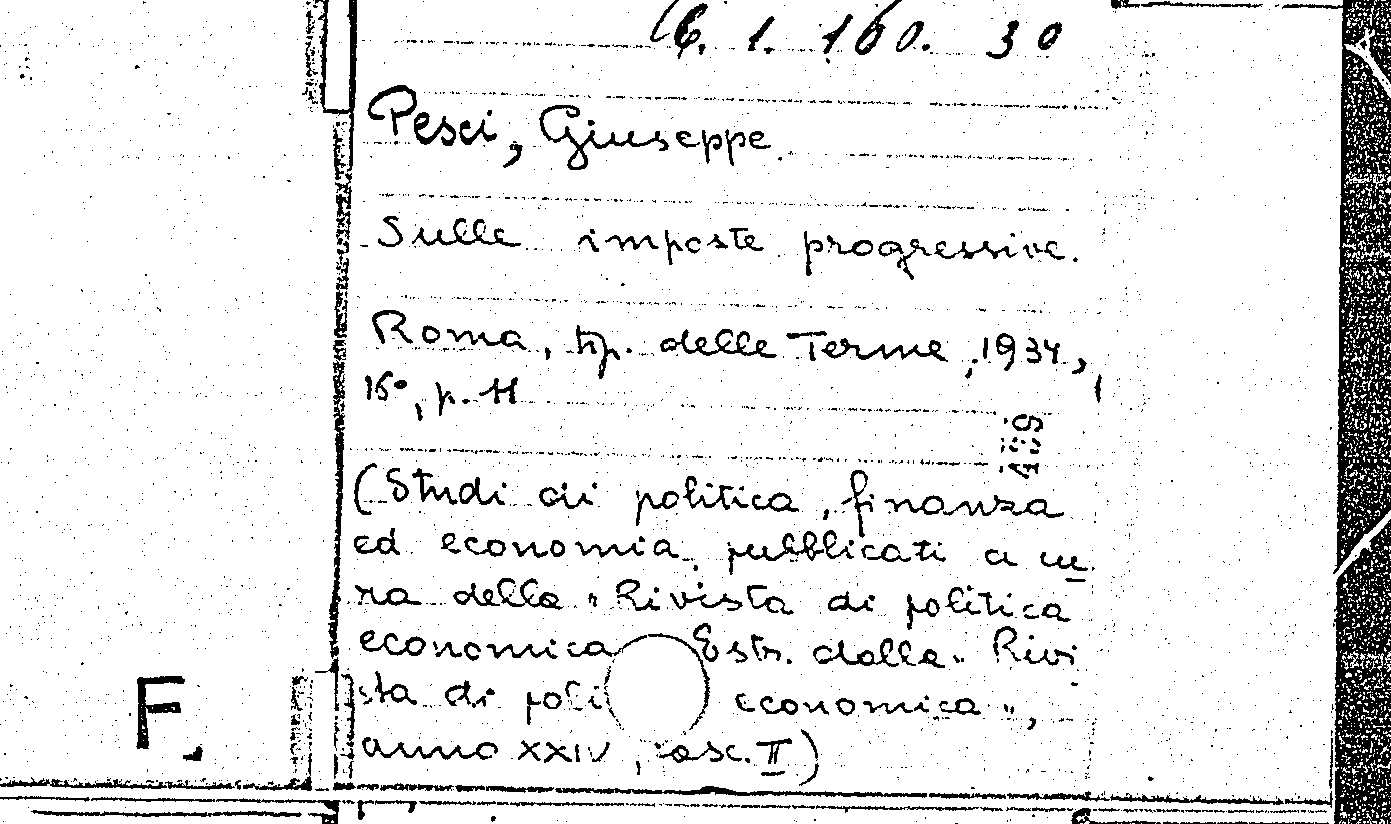 6. 1. 160. 30
Pesci, Giuseppe
Sulle imposte progressive.
Roma, tip. delle Terme, 1934,
16°, p. 11
489
(Studi di politica, finanza
ed economia, pubblicati a cu
ra della "Rivista di politica
economica Estr. dalla "Rivi
sta di poli economica",
anno XXIV, fasc. II)
F.